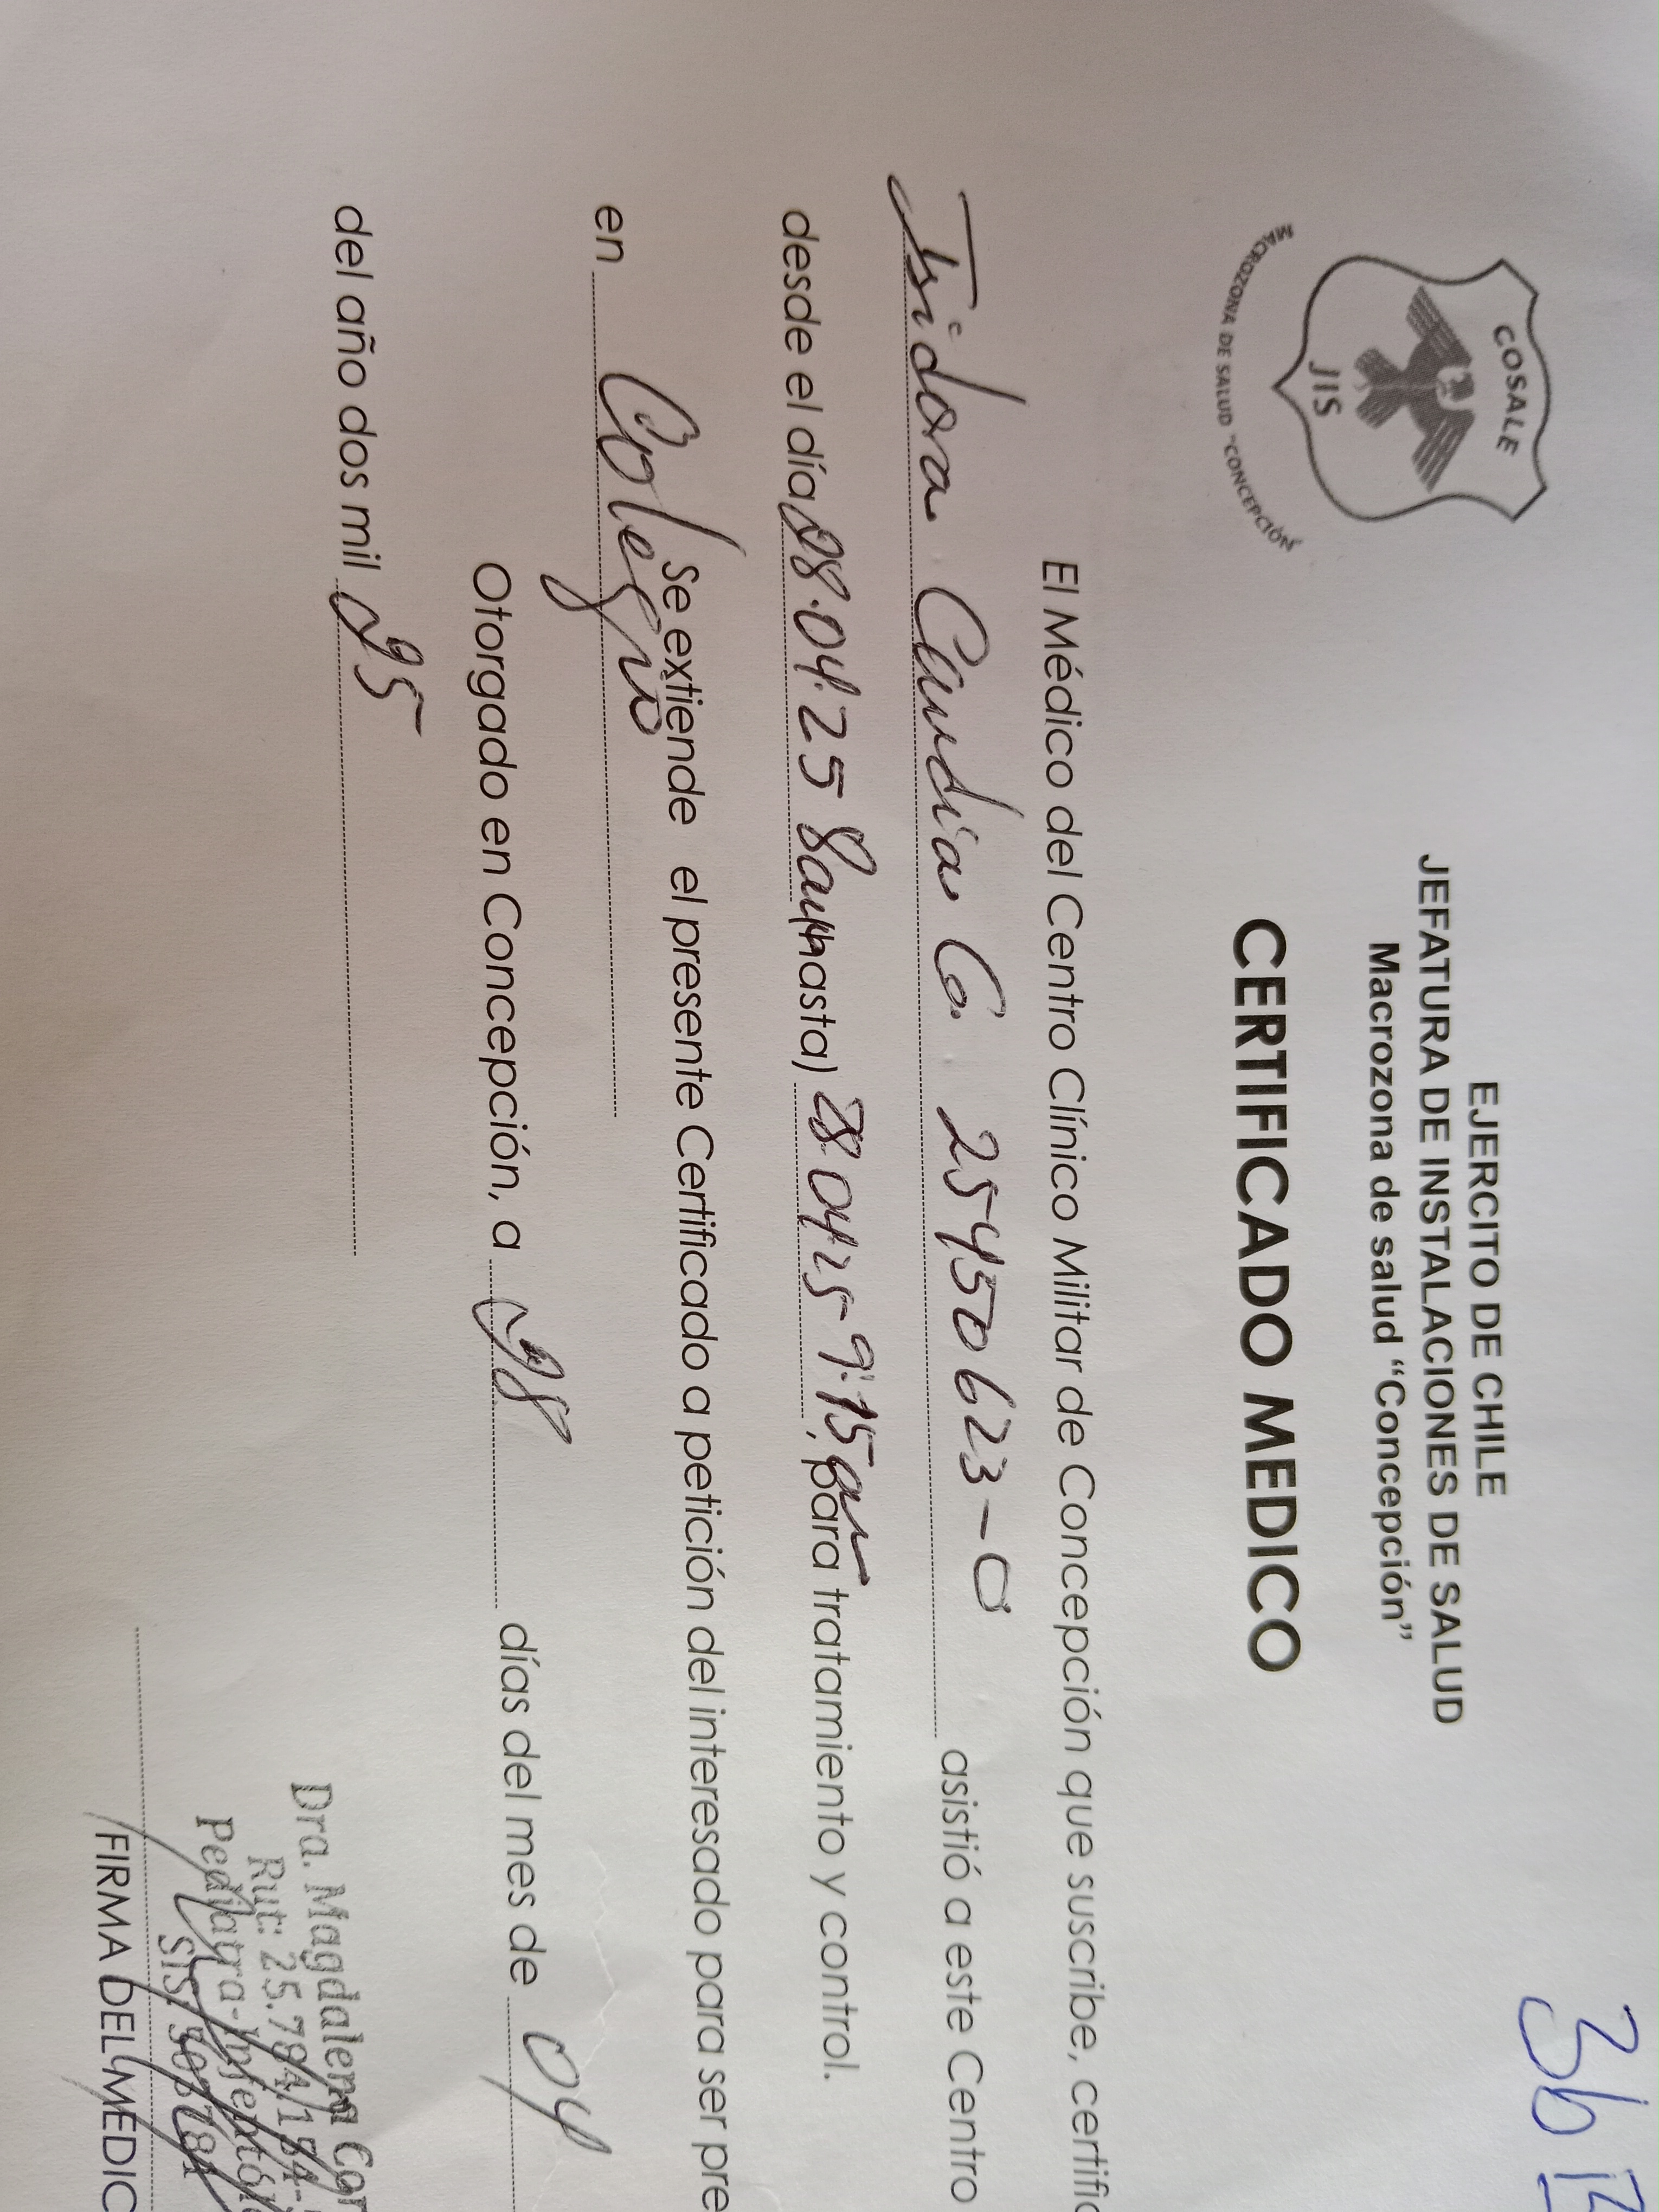 3b
COSALE
JIS
MACROZONA DE SALUD "CONCEPCIÓN"
EJERCITO DE CHILE
JEFATURA DE INSTALACIONES DE SALUD
Macrozona de salud "Concepción"
CERTIFICADO MEDICO
El Médico del Centro Clínico Militar de Concepción que suscribe, certific
Isidora Candia G. 25450623-0 asistió a este Centro
desde el día 28.04.25 8am hasta) 28 04 25 9:15am, para tratamiento y control.
Se extiende el presente Certificado a petición del interesado para ser pre
en Colegio
Otorgado en Concepción, a 28 días del mes de 04
del año dos mil 25
Dra. Magdalena
Rut: 25.784.154-
Pediatra-Infectól
SIS:
FIRMA DEL MEDIC